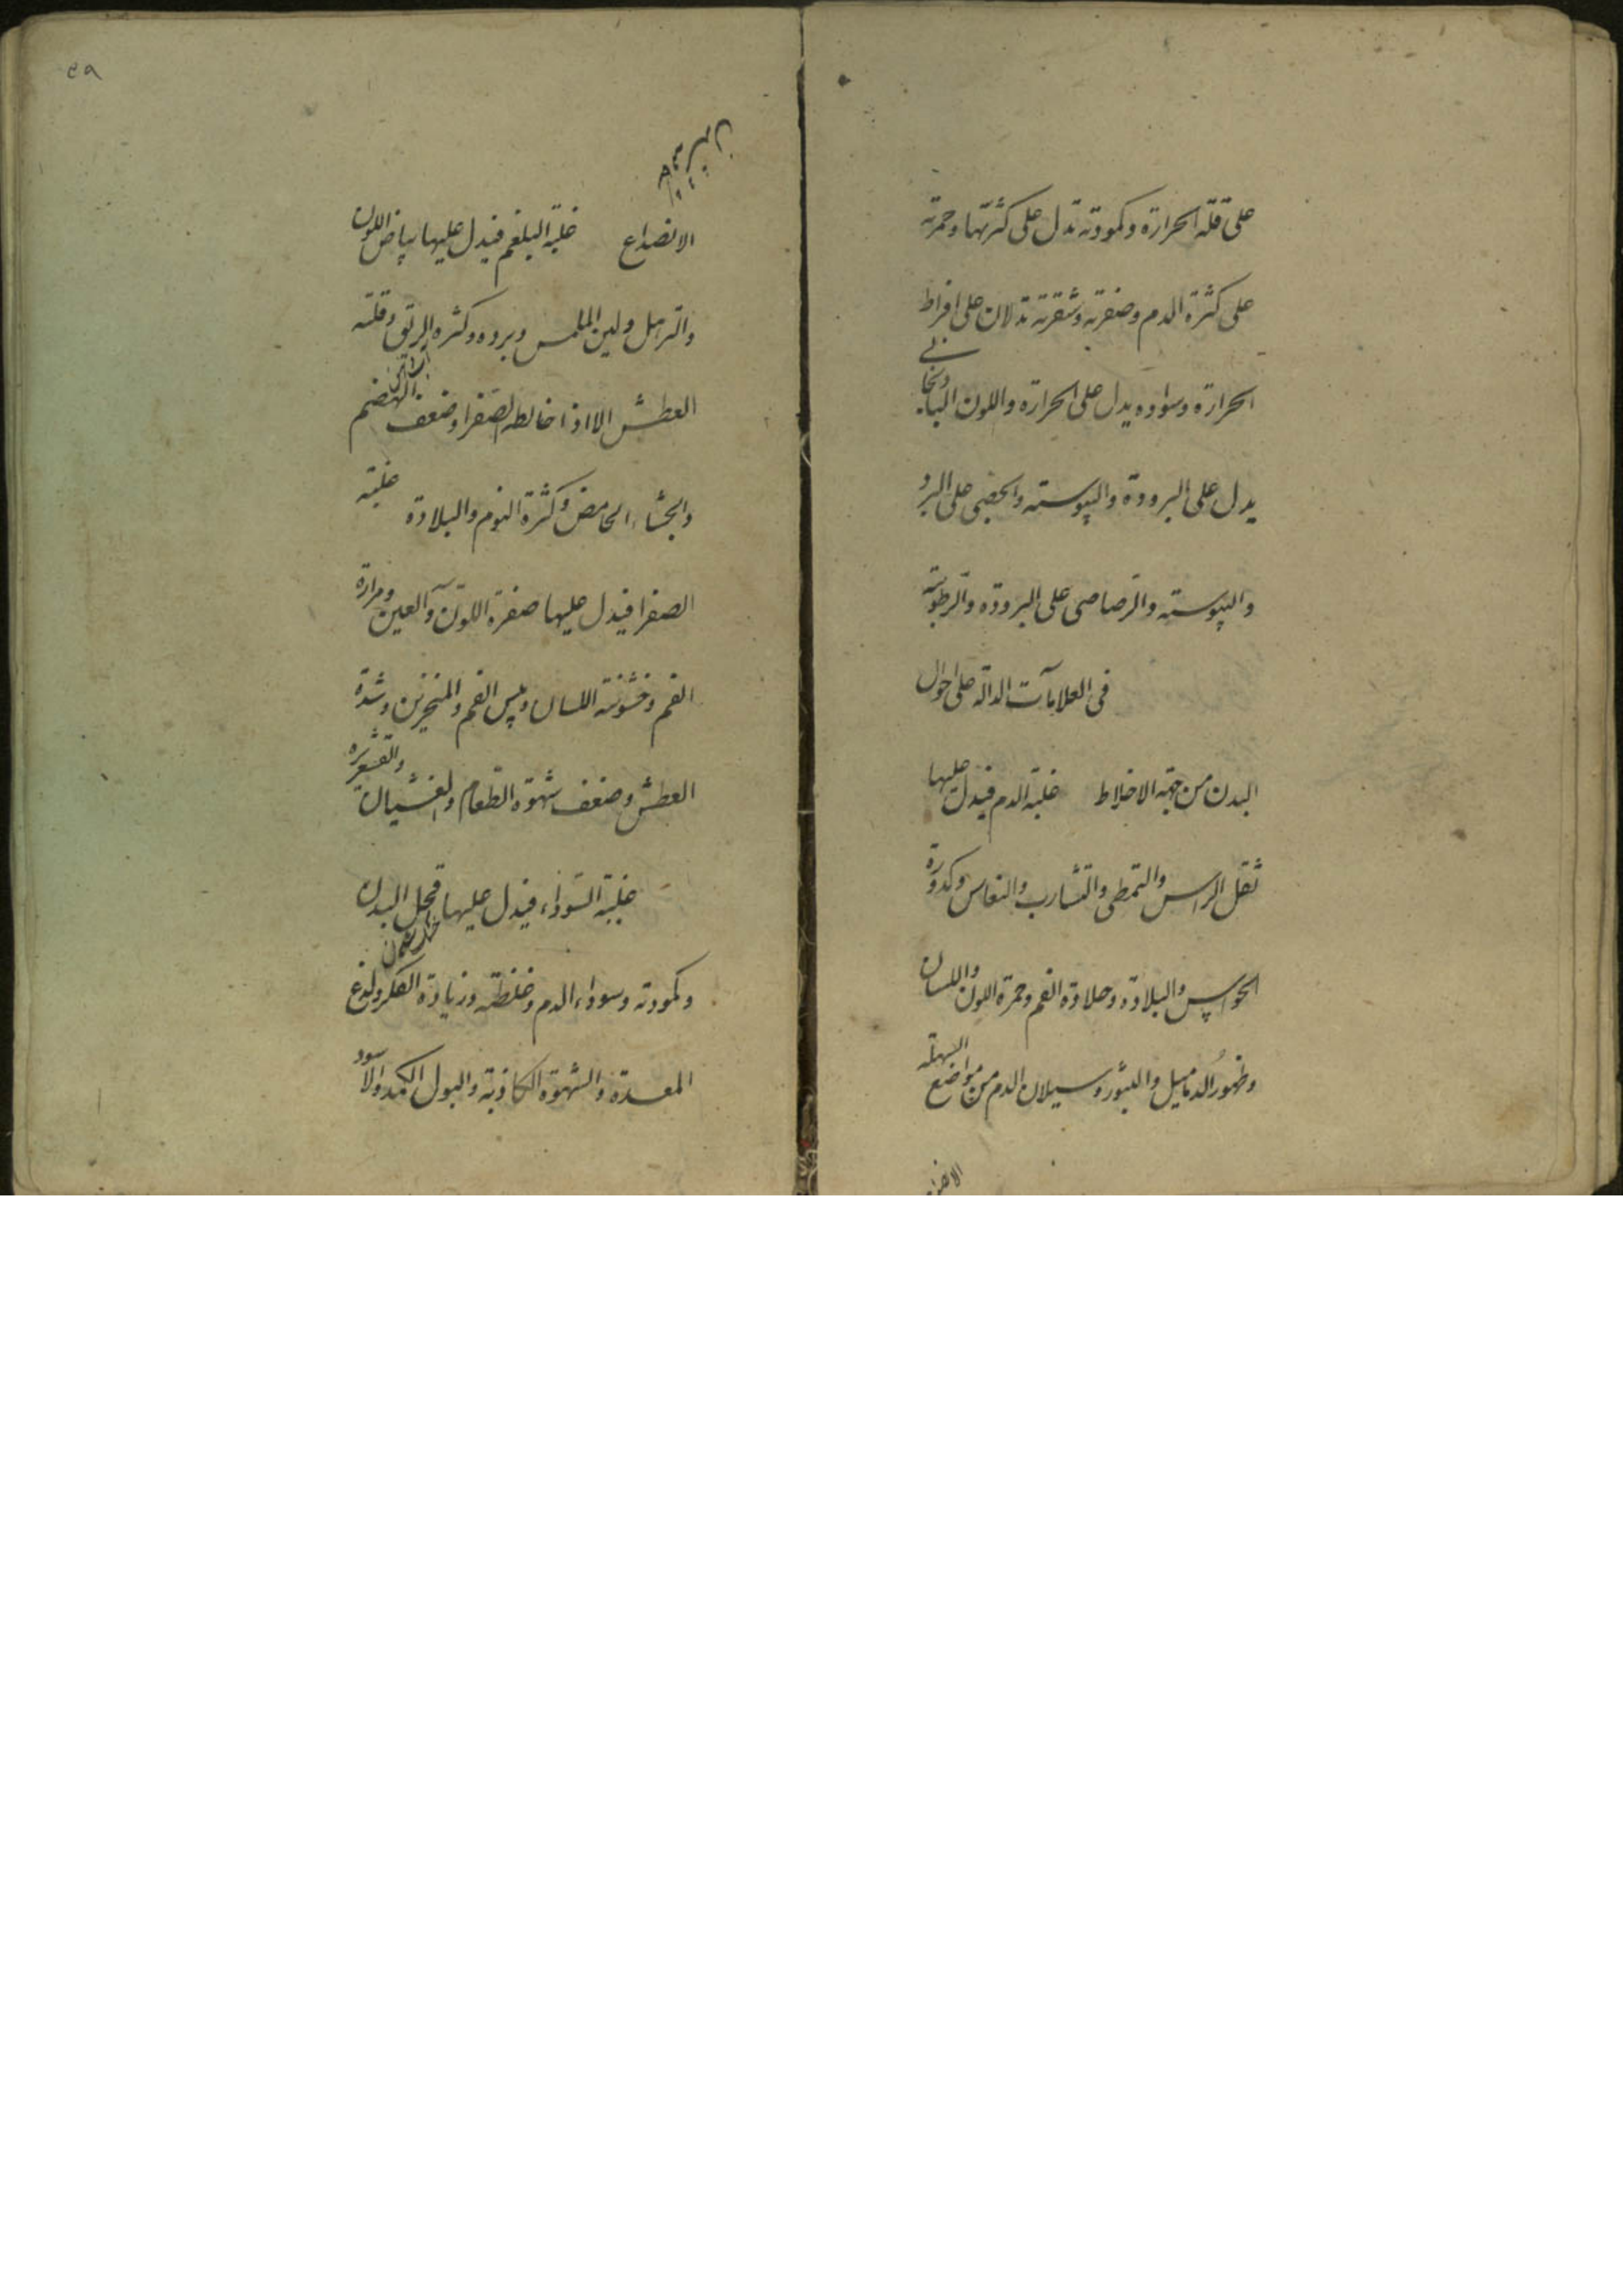 على قلة الحرارة وكمودته تدل على كثرتها وحمرته
على كثرة الدم وصفرته وشقرته تدلان على افراط
الحرارة وسواده يدل على الحرارة واللون الباذنجانى
يدل على البرودة واليبوسته والجصى على البرد
واليبوسته والرصاصى على البرودة والرطوبته
فى العلامات الدالة على احوال
البدن من جهة الاخلاط غلبة الدم فيدل عليها
ثقل الراس والتمطى والتثارب والنعاس وكدورة
الحواس والبلادة وحلاوة الفم وحمرة اللون واللسان
وظهور الدماميل والبثور وسيلان الدم من مواضع السهلة
٤٩
الانصداع غلبة البلغم فيدل عليها بياض اللون
والترهل ولين الملمس وبرده وكثرة الريق وقلته
العطش الا اذا خالطه الصفرا وضعف الهضم
والجشاء الحامض وكثرة النوم والبلادة غلبة
الصفرا فيدل عليها صفرة اللون والعين ومرارة
الفم وخشونته اللسان ويبس الفم والمنخرين وشدة
العطش وضعف شهوة الطعام والغشيان والقشعريره
غلبة السوداء فيدل عليها قحل البدن
وكمودته وسواد الدم وغلظته وزيادة الفكر ولذع
المعدة والشهوة الكاذبة والبول الكمد والاسود